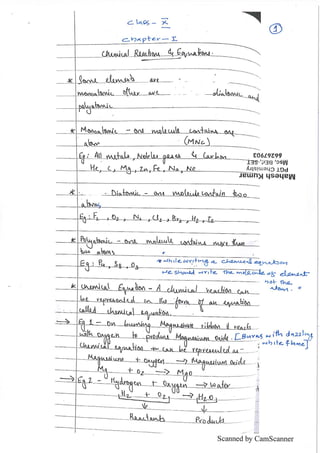 Class - X
①
Chapter - I
Chemical Reaction & Equations.
* Some elements are
monoatomic other are diatomic and
polyatomic
* Monoatomic - one molecule contains one
atom (MNC)
Eg: All metals, Nobles gases & Carbon.
He, C, Mg, Zn, Fe, Na, Ne
Mahesh Kumar
PGT Chemistry
MSc, BEd, SET
9462679603
* Diatomic - one molecule contain two
atoms
Eg: F₂, O₂, N₂, Cl₂, Br₂, H₂, I₂
* Polyatomic - one molecule contains more than
two atoms
Eg: P₄, S₈, O₃
* while writing a chemical equation
we should write the molecule of element
not the atom.
* Chemical Equation - A chemical reaction can
be represented in the form of an equation
called chemical equation.
→ Eg 1 - On burning Magnesium ribbon it reacts
with oxygen to produce Magnesium Oxide. [Burns with dazzling
white flame]
Chemical equation → can be represented as -
Magnesium + Oxygen → Magnesium Oxide
Mg + O₂ → MgO
→ Eg 2 - Hydrogen + Oxygen → Water
H₂ + O₂ → H₂O
Reactants Products
Scanned by CamScanner